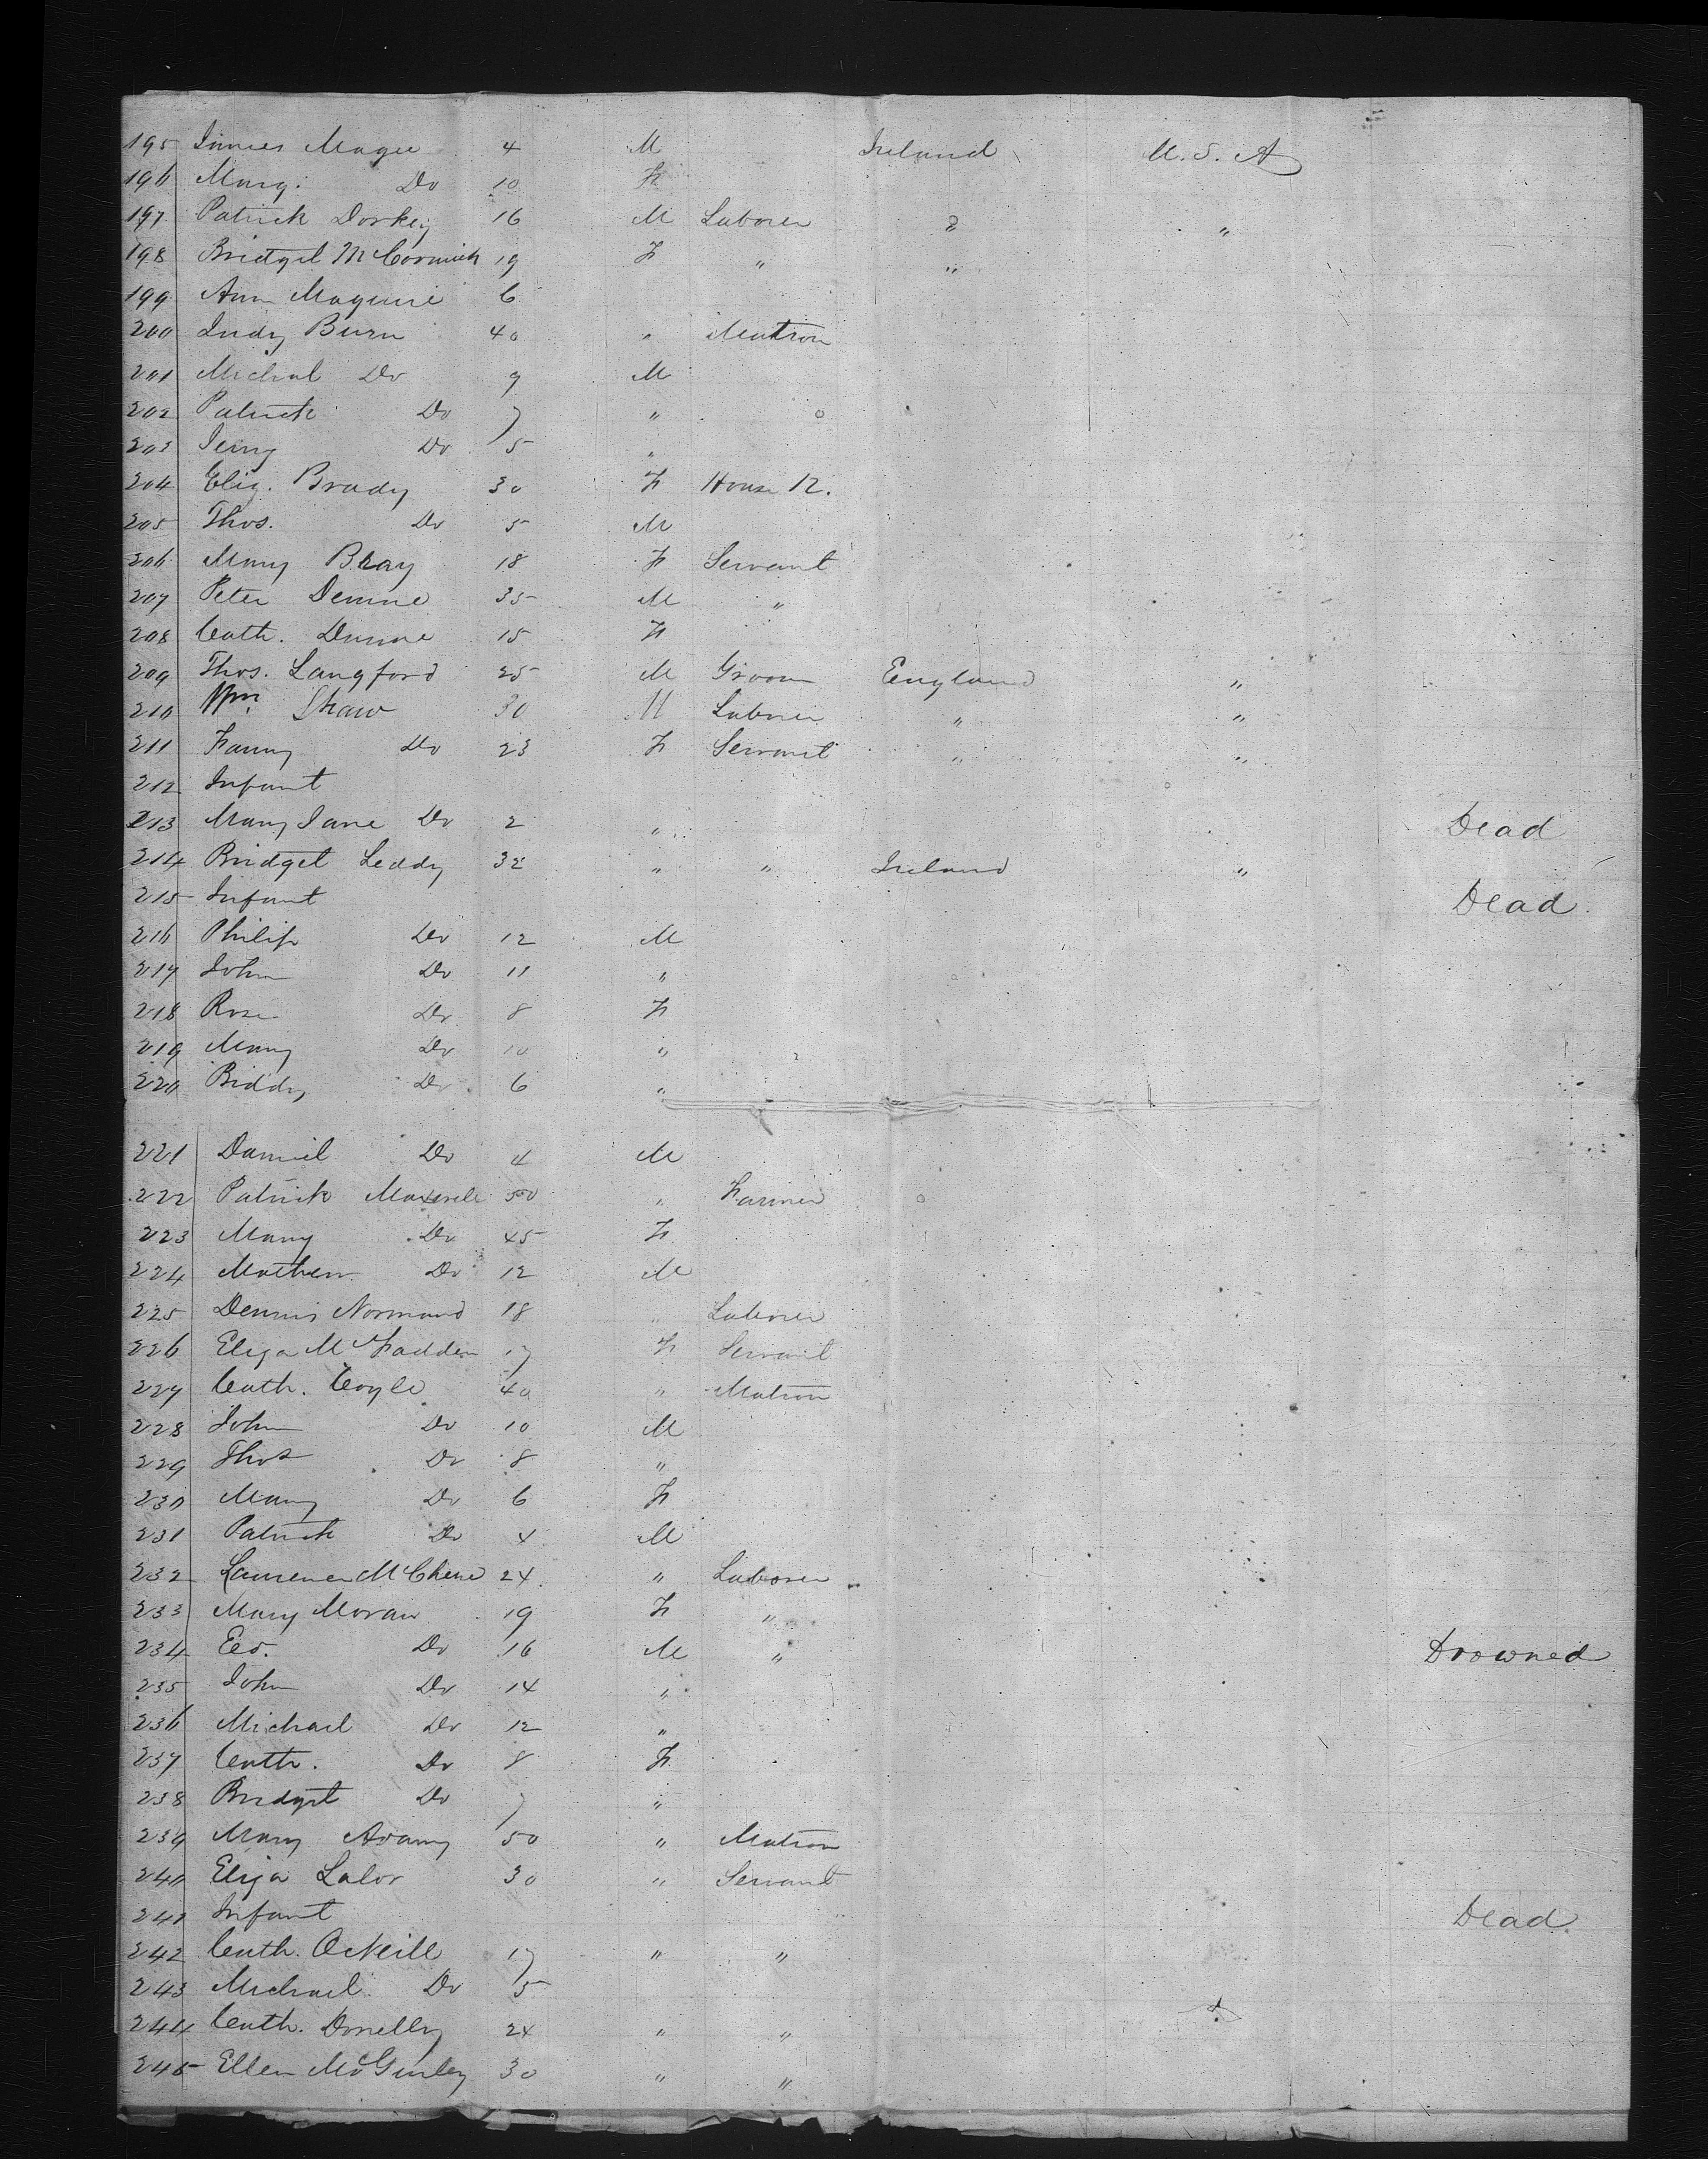 195 James Magee 4 M Ireland U.S.A
196 Marg: Do 10 F
197 Patrick Dorkey 16 M Laborer " "
198 Bridget McCormick 19 F " "
199 Ann Maguire 6
200 Judy Burn 40 " Matron
201 Michal Do 9 M
202 Patrick Do 7 "
203 Do 5 "
204 Eliz. Brady 30 F House K.
205 Thos. Do 5 M
206 Mary Bray 18 F Servant
207 Peter Dunne 35 M "
208 Cath. Dunne 15 F
209 Thos. Langford 25 M Groom England "
210 Wm. Shaw 30 M Laborer " "
211 Fanny Do 23 F Servant " "
212 Infant
213 Mary Jane Do 2 " Dead
214 Bridget Leddy 32 " " Ireland "
215 Infant Dead
216 Philip Do 12 M
217 John Do 11 "
218 Rose Do 8 F
219 Mary Do 10 "
220 Biddy Do 6 "
221 Daniel Do 4 M
222 Patrick Maxwell 50 " Farmer
223 Mary Do 45 F
224 Mathew Do 12 M
225 Dennis Normand 18 " Laborer
226 Eliza McFadden 17 F Servant
227 Cath. Coyle 40 " Matron
228 John Do 10 M
229 Thos Do 8 "
230 Mary Do 6 F
231 Patrick Do 4 M
232 Laurence 24 " Laborer
233 Mary Moran 19 F "
234 Ed. Do 16 M " Drowned
235 John Do 14 "
236 Michael Do 12 "
237 Cath. Do 8 F
238 Bridget Do 7 "
239 Mary Adams 50 " Matron
240 Eliza Lalor 30 " Servant
241 Infant Dead
242 Cath. ONeill 17 " "
243 Michael Do 5
244 Cath. Donelly 24 " "
245 Ellen McGinley 30 " "